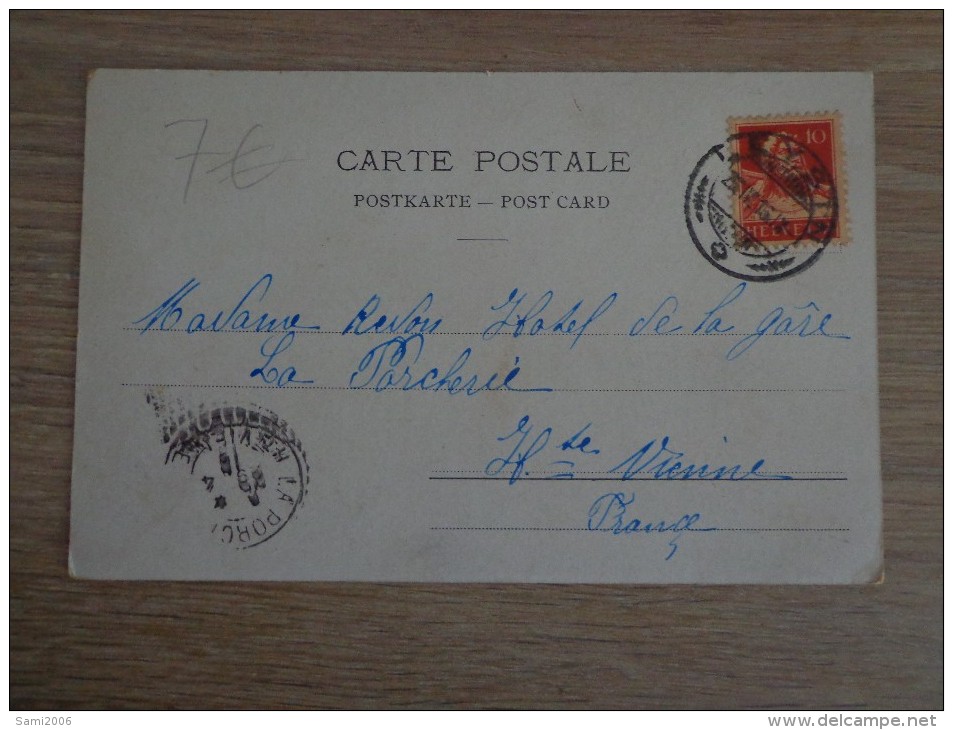 7€
CARTE POSTALE
POSTKARTE — POST CARD
10
HELVE
Madame Redon Hotel de la gâre
La Porcherie
Hte Vienne
France
LA PORC
HTE VIENNE
Sami2006
www.delcampe.net